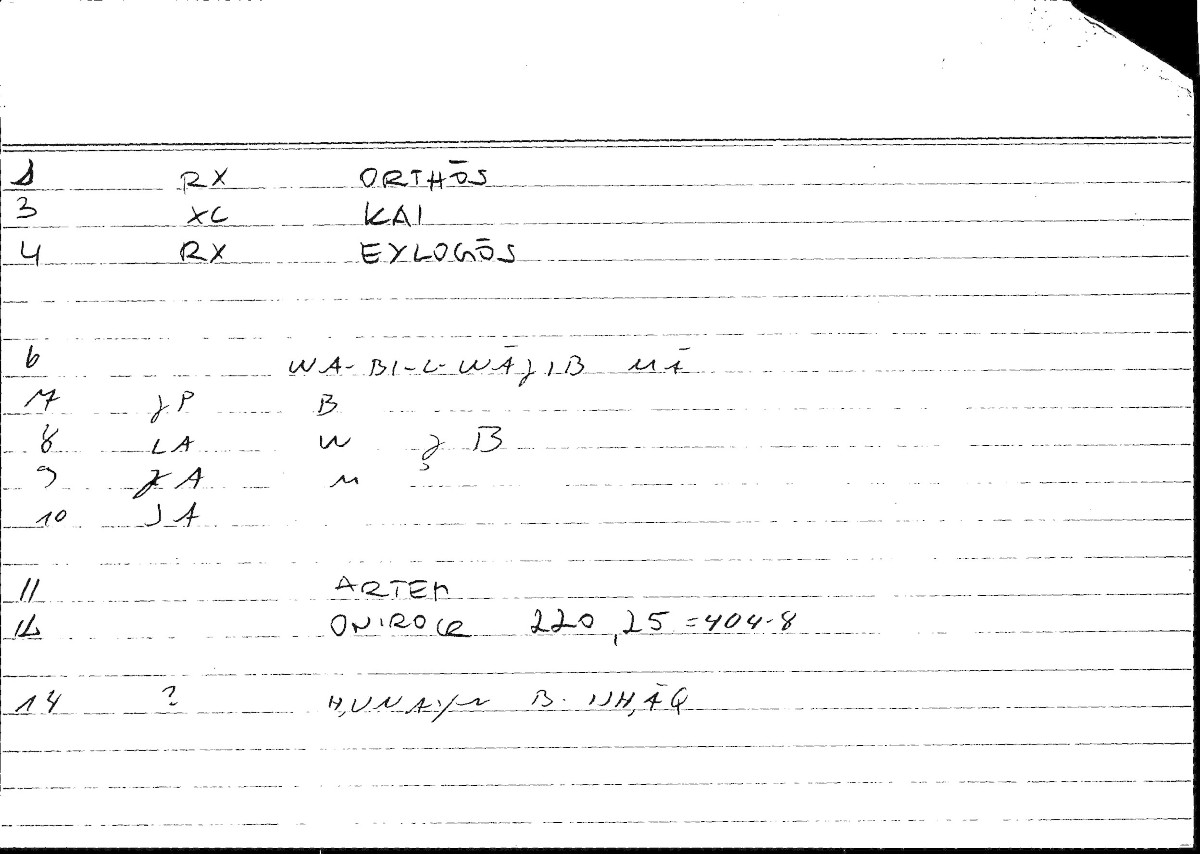 1 RX ORTHŌS
3 XC KAI
4 RX EYLOGŌS
6 WA-BI-L-WĀJIB MĀ
7 JP B
8 LA W J B
9 JA M
10 JA
11 ARTEM
12 ONIROCR 220,25=404-8
14 ? H,UNAYN B. ISH,ĀQ